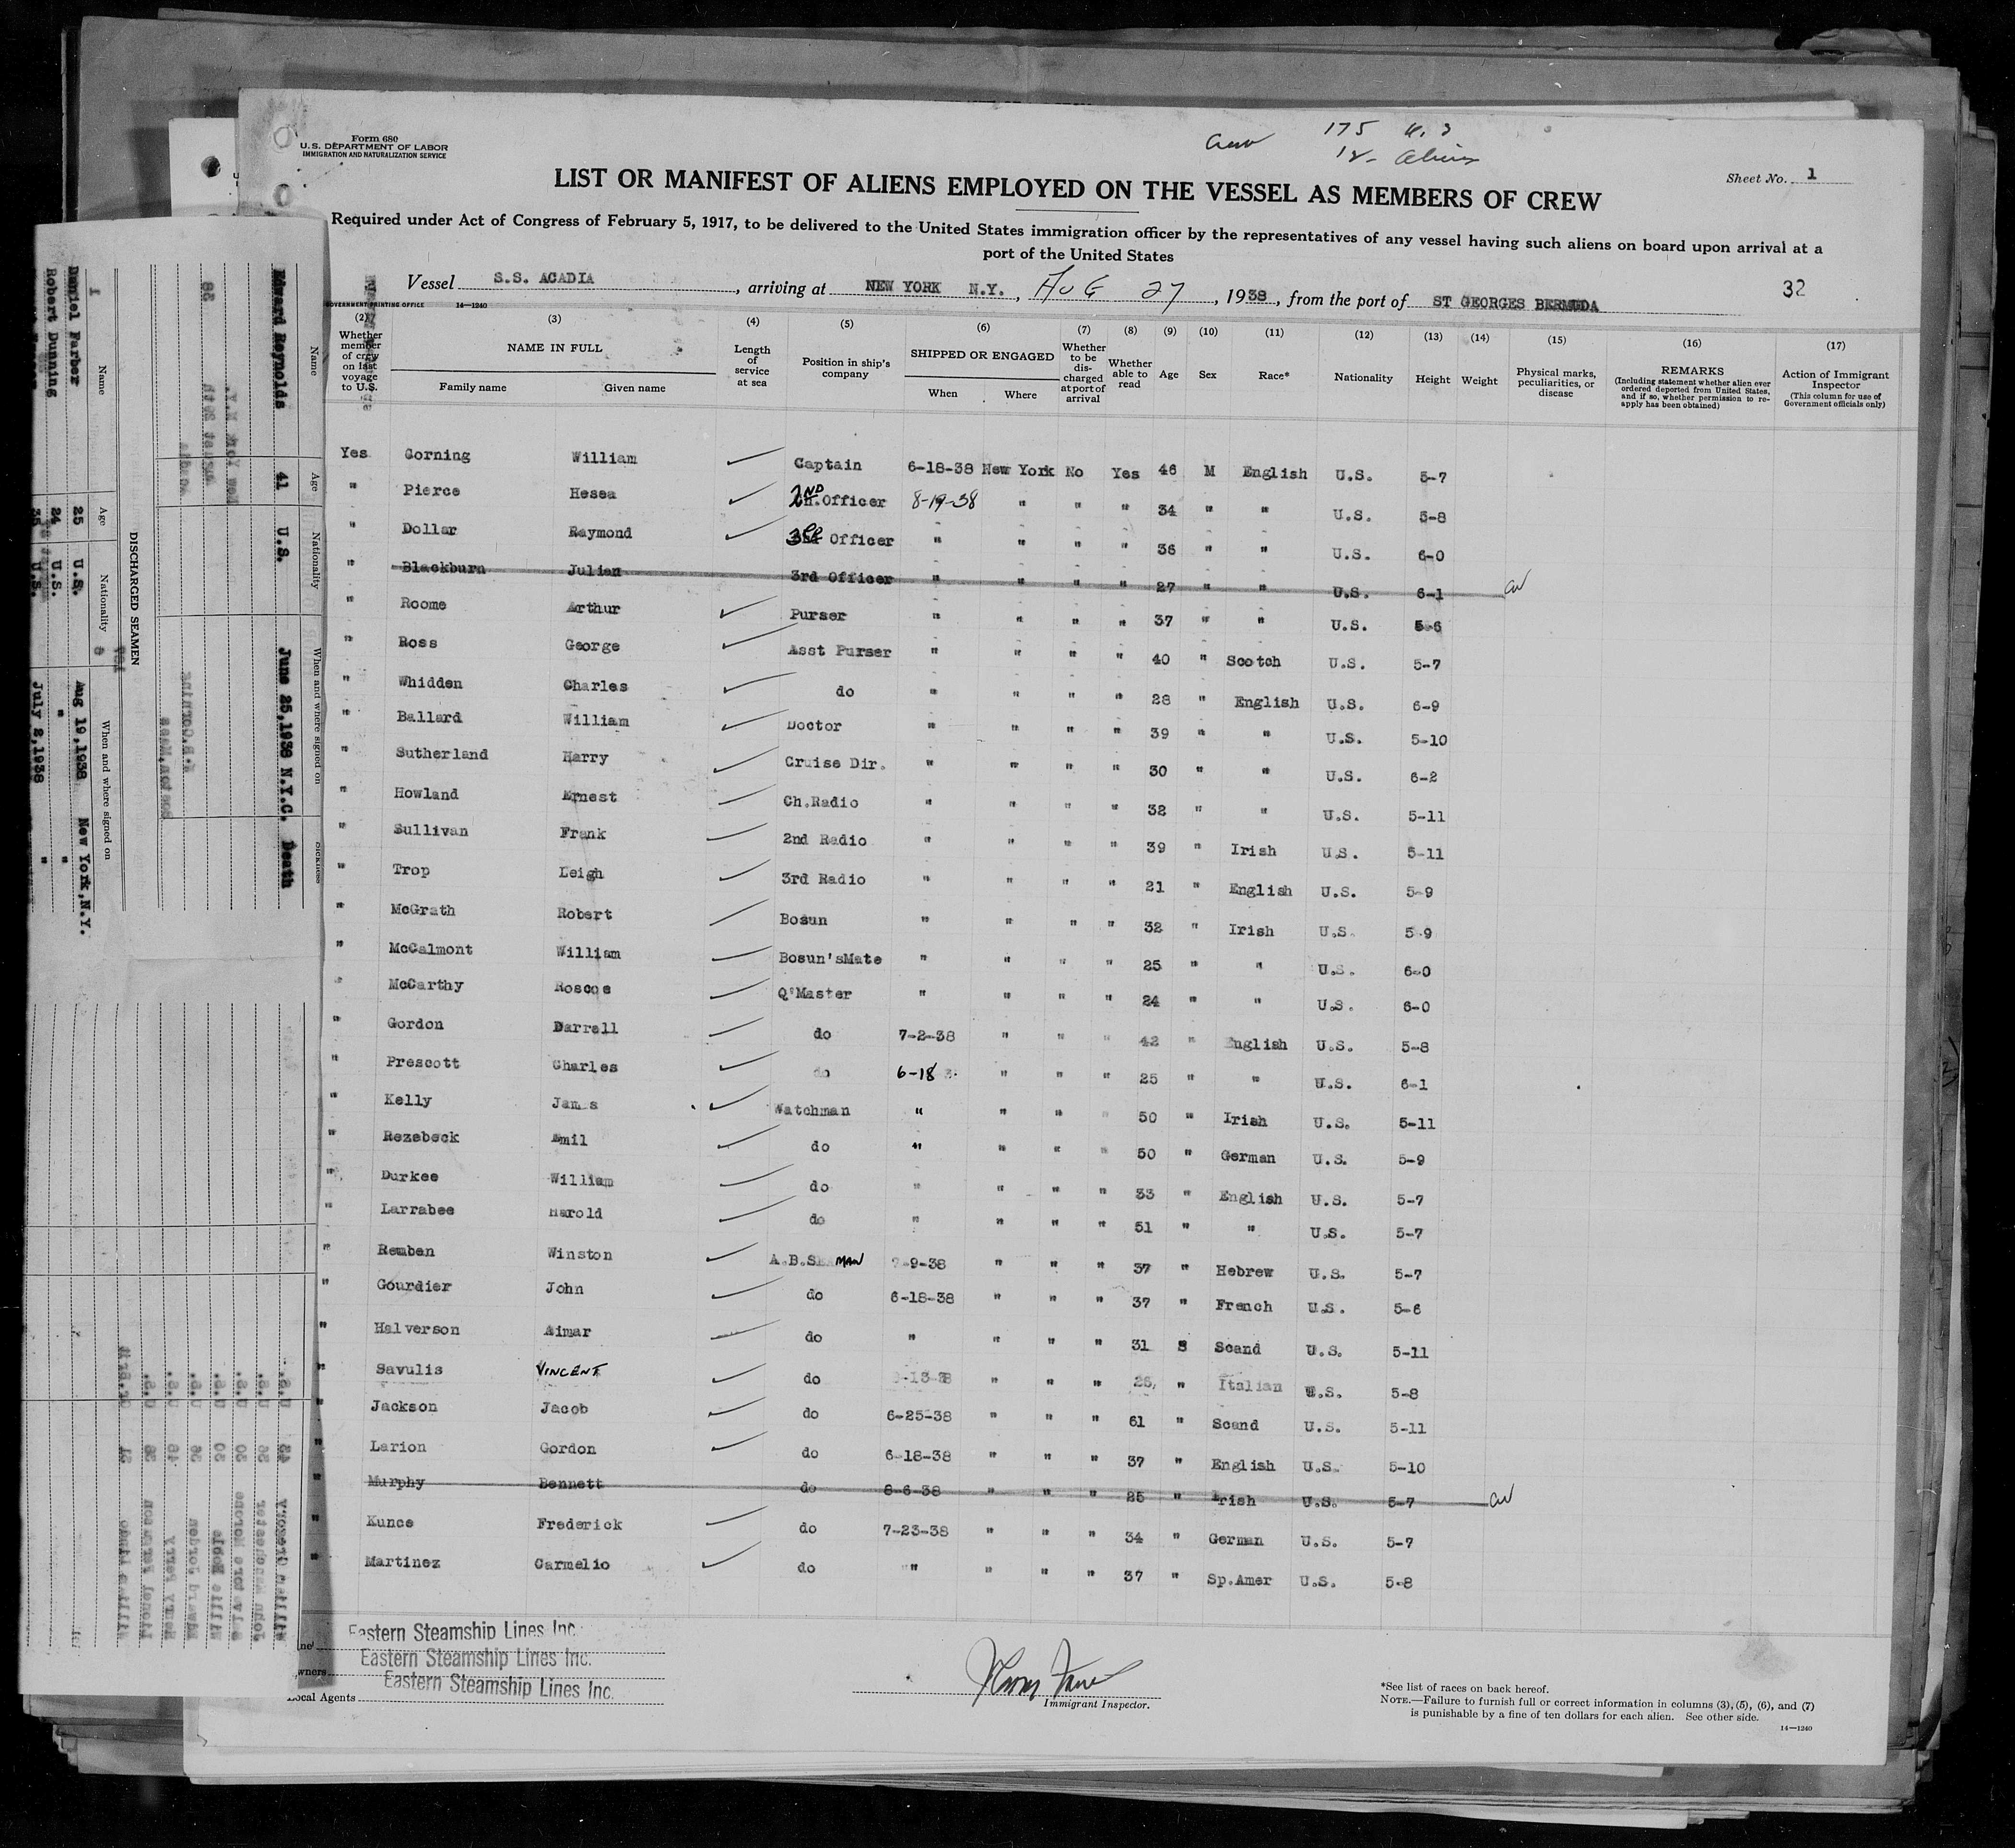 Form 680
U.S. DEPARTMENT OF LABOR
IMMIGRATION AND NATURALIZATION SERVICE
175 U.S
Sheet No. 1
LIST OR MANIFEST OF ALIENS EMPLOYED ON THE VESSEL AS MEMBERS OF CREW
Required under Act of Congress of February 5, 1917, to be delivered to the United States immigration officer by the representatives of any vessel having such aliens on board upon arrival at a
port of the United States
Vessel S.S. ACADIA, arriving at NEW YORK N.Y., AUG 27, 1938, from the port of ST GEORGES BERMUDA 32
GOVERNMENT PRINTING OFFICE 14—1240
(2) (3) (4) (5) (6) (7) (8) (9) (10) (11) (12) (13) (14) (15) (16) (17)
Whether member of crew on last voyage to U.S. NAME IN FULL Family name Given name Length of service at sea Position in ship's company SHIPPED OR ENGAGED When Where Whether to be discharged at port of arrival Whether able to read Age Sex Race* Nationality Height Weight Physical marks, peculiarities, or disease REMARKS (Including statement whether alien ever ordered deported from United States, and if so, whether permission to re-apply has been obtained) Action of Immigrant Inspector (This column for use of Government officials only)
Yes Corning William Captain 6-18-38 New York No Yes 46 M English U.S. 5-7
" Pierce Hesea 2ND Officer 8-19-38 " " " 34 " " U.S. 5-8
" Dollar Raymond 3rd Officer " " " " 36 " " U.S. 6-0
" Blackburn Julian 3rd Officer " " " " 27 " " U.S. 6-1
" Roome Arthur Purser " " " " 37 " " U.S. 5-6
" Ross George Asst Purser " " " " 40 " Scotch U.S. 5-7
" Whidden Charles do " " " " 28 " English U.S. 6-9
" Ballard William Doctor " " " " 39 " " U.S. 5-10
" Sutherland Harry Cruise Dir. " " " " 30 " " U.S. 6-2
" Howland Ernest Ch.Radio " " " " 32 " " U.S. 5-11
" Sullivan Frank 2nd Radio " " " " 39 " Irish U.S. 5-11
" Trop Leigh 3rd Radio " " " " 21 " English U.S. 5-9
" McGrath Robert Bosun " " " " 32 " Irish U.S. 5-9
" McCalmont William Bosun'sMate " " " " 25 " " U.S. 6-0
" McCarthy Roscoe Q'Master " " " " 24 " " U.S. 6-0
" Gordon Darrell do 7-2-38 " " " 42 " English U.S. 5-8
" Prescott Charles do 6-18 " " " 25 " " U.S. 6-1
" Kelly James Watchman " " " " 50 " Irish U.S. 5-11
" Rezebeck Emil do " " " " 50 " German U.S. 5-9
" Durkee William do " " " " 33 " English U.S. 5-7
" Larrabee Harold do " " " " 51 " " U.S. 5-7
" Reuben Winston A.B.SEAMAN 9-38 " " " 37 " Hebrew U.S. 5-7
" Gourdier John do 6-18-38 " " " 37 " French U.S. 5-6
" Halverson Aimar do " " " " 31 S Scand U.S. 5-11
" Savulis VINCENT do 13-38 " " " 26 " Italian U.S. 5-8
" Jackson Jacob do 6-25-38 " " " 61 " Scand U.S. 5-11
" Larion Gordon do 6-18-38 " " " 37 " English U.S. 5-10
" Murphy Bennett do 8-6-38 " " " 25 " Irish U.S. 5-7
" Kunce Frederick do 7-23-38 " " " 34 " German U.S. 5-7
" Martinez Carmelio do " " " " 37 " Sp.Amer U.S. 5-8
Eastern Steamship Lines Inc.
Owners Eastern Steamship Lines Inc.
Local Agents Eastern Steamship Lines Inc.
Immigrant Inspector.
*See list of races on back hereof.
NOTE.—Failure to furnish full or correct information in columns (3), (5), (6), and (7)
is punishable by a fine of ten dollars for each alien. See other side.
14—1240
Name Age Nationality When and where signed on Sickness
Edward Reynolds 41 U.S. June 25,1938 N.Y.C. Death
DISCHARGED SEAMEN
Name Age Nationality When and where signed on
1 Daniel Farber 25 U.S. Aug 19,1938 New York,N.Y.
Robert Dunning 24 U.S. " "
35 U.S. July 2,1938 "